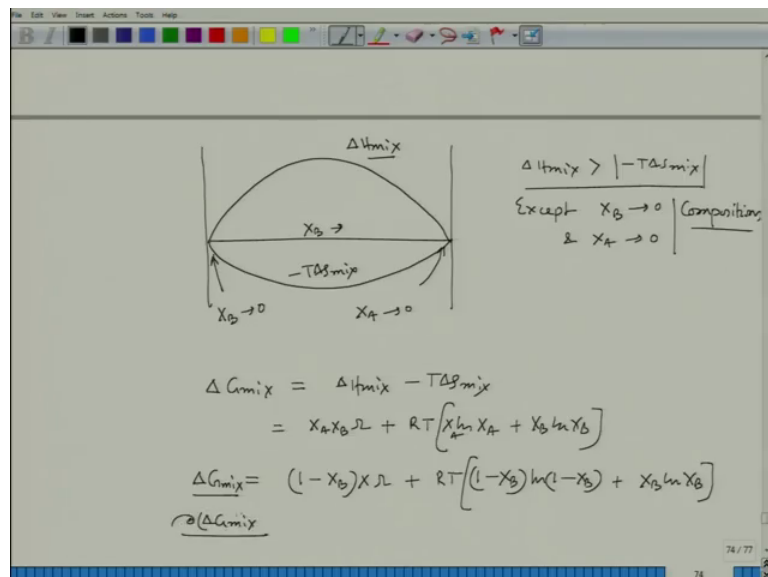 File Edit View Insert Actions Tools Help
B I
ΔHmix
XB →
-TΔSmix
XB → 0
XA → 0
ΔHmix > |-TΔSmix|
Except XB → 0 | Compositions
& XA → 0
ΔGmix = ΔHmix - TΔSmix
= XAXBΩ + RT[XA ln XA + XB ln XB]
ΔGmix = (1-XB)XΩ + RT[(1-XB)ln(1-XB) + XB ln XB]
∂(ΔGmix
74 / 77
74